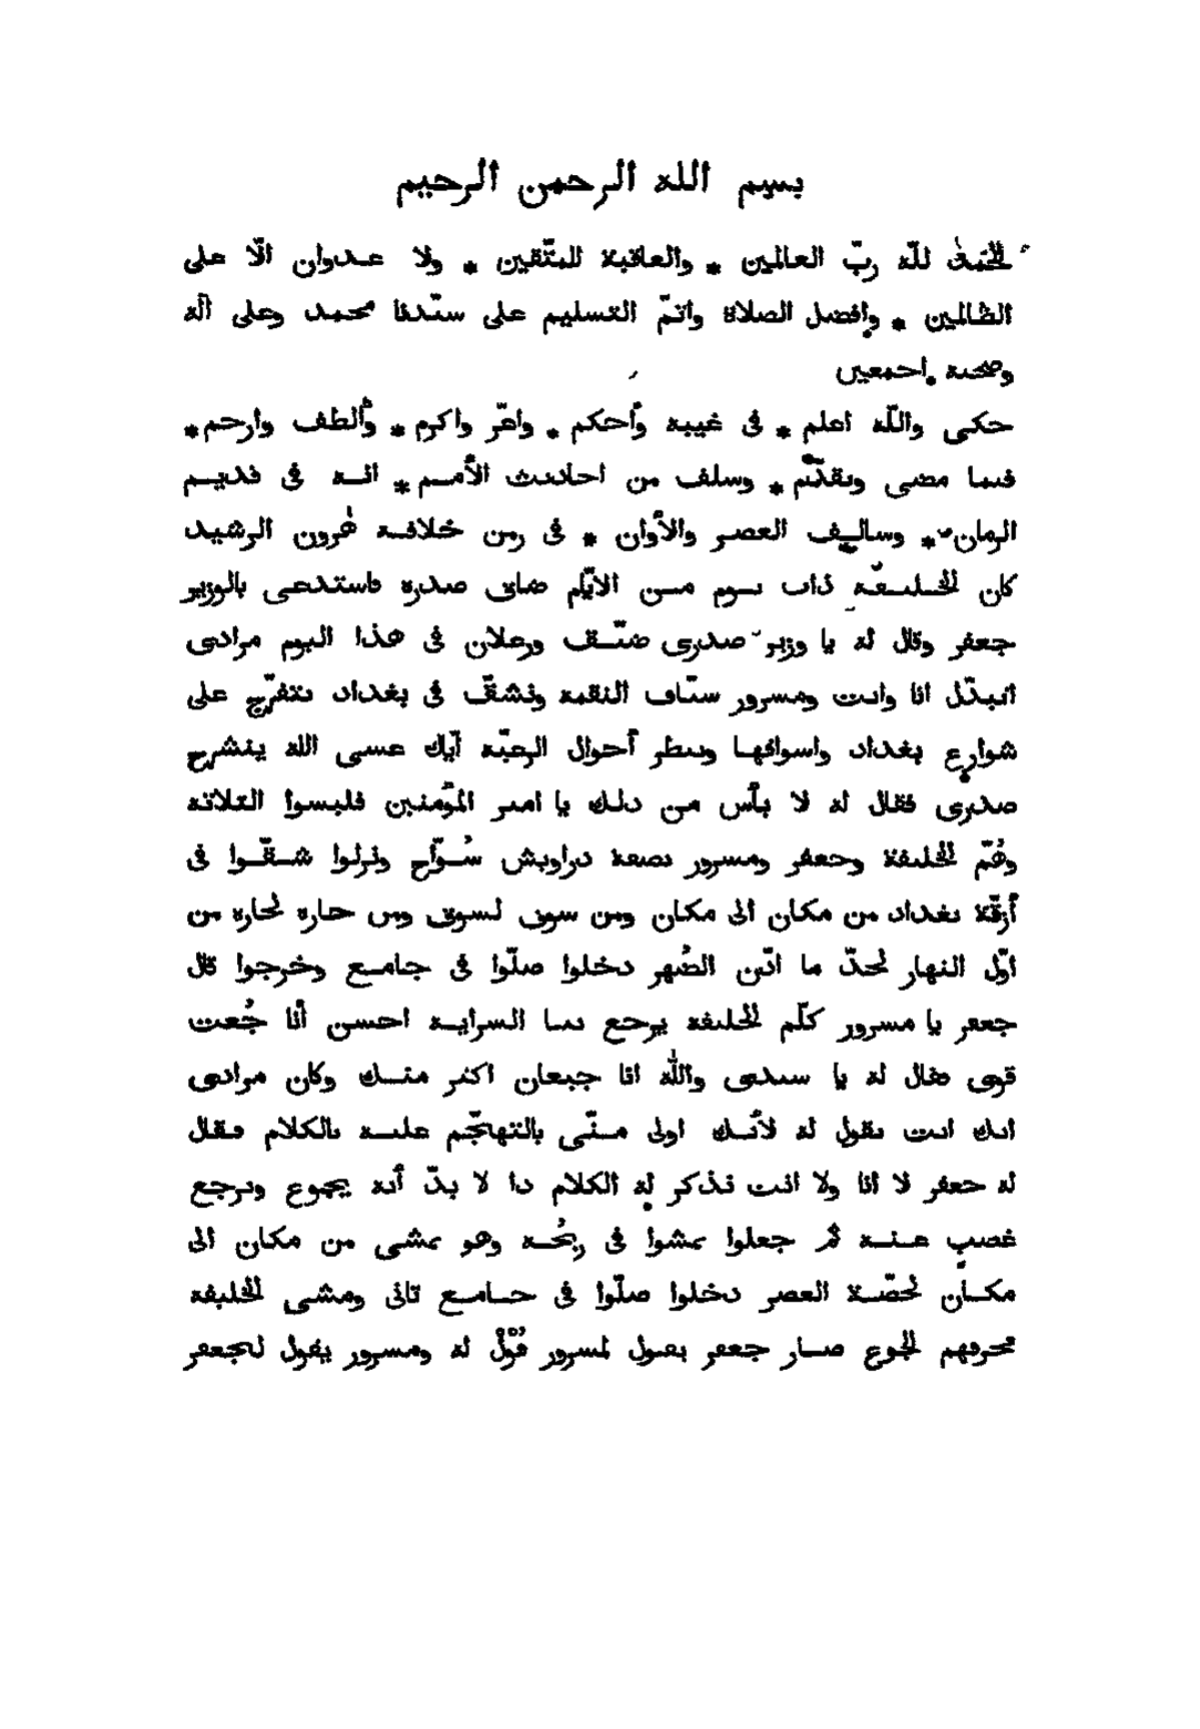 بسم الله الرحمن الرحيم
الحمد لله ربّ العالمين * والعاقبة للمتّقين * ولا عدوان الّا على
الظالمين * وافضل الصلاة واتمّ التسليم على سيّدنا محمد وعلى آله
وصحبه اجمعين
حكى واللّه اعلم * فى غيبه وأحكم * واعزّ واكرم * وألطف وارحم *
فيما مضى وتقدّم * وسلف من احاديث الأمم * انه فى قديم
الزمان * وسالف العصر والأوان * فى زمن خلافة هٰرون الرشيد
كان الخليفة ذات يوم من الايّام ضاق صدره فاستدعى بالوزير
جعفر وقال له يا وزير صدرى ضيّق وزعلان فى هذا اليوم مرادى
اتبدّل انا وانت ومسرور سيّاف النقمة ونشقّ فى بغداد نتفرّج على
شوارع بغداد واسواقها وننظر أحوال الرعيّة آيّاك عسى الله ينشرح
صدرى فقال له لا بأس من ذلك يا امير المؤمنين فلبسوا الثلاثة
وهُمّ الخليفة وجعفر ومسرور بصفة دراويش سُوّاح ونزلوا شقّوا فى
أزقّة بغداد من مكان الى مكان ومن سوق لسوق ومن حاره لحاره من
اوّل النهار لحدّ ما ادّن الضُهر دخلوا صلّوا فى جامع وخرجوا قال
جعفر يا مسرور كلّم الخليفة يرجع بنا السراية احسن أنا جُعت
قوى فقال له يا سيدى واللّه انا جيعان اكثر منك وكان مرادى
انك انت تقول له لأنك اولى منّى بالتهجّم عليه بالكلام فقال
له جعفر لا انا ولا انت نذكر له الكلام دا لا بدّ أنه يجوع ويرجع
غصب عنه ثم جعلوا يمشوا فى ريحُه وهو يمشى من مكان الى
مكان لحصّة العصر دخلوا صلّوا فى جامع تانى ومشى الخليفة
محرقهم الجوع صار جعفر يقول لمسرور قُوْلْ له ومسرور يقول لجعفر